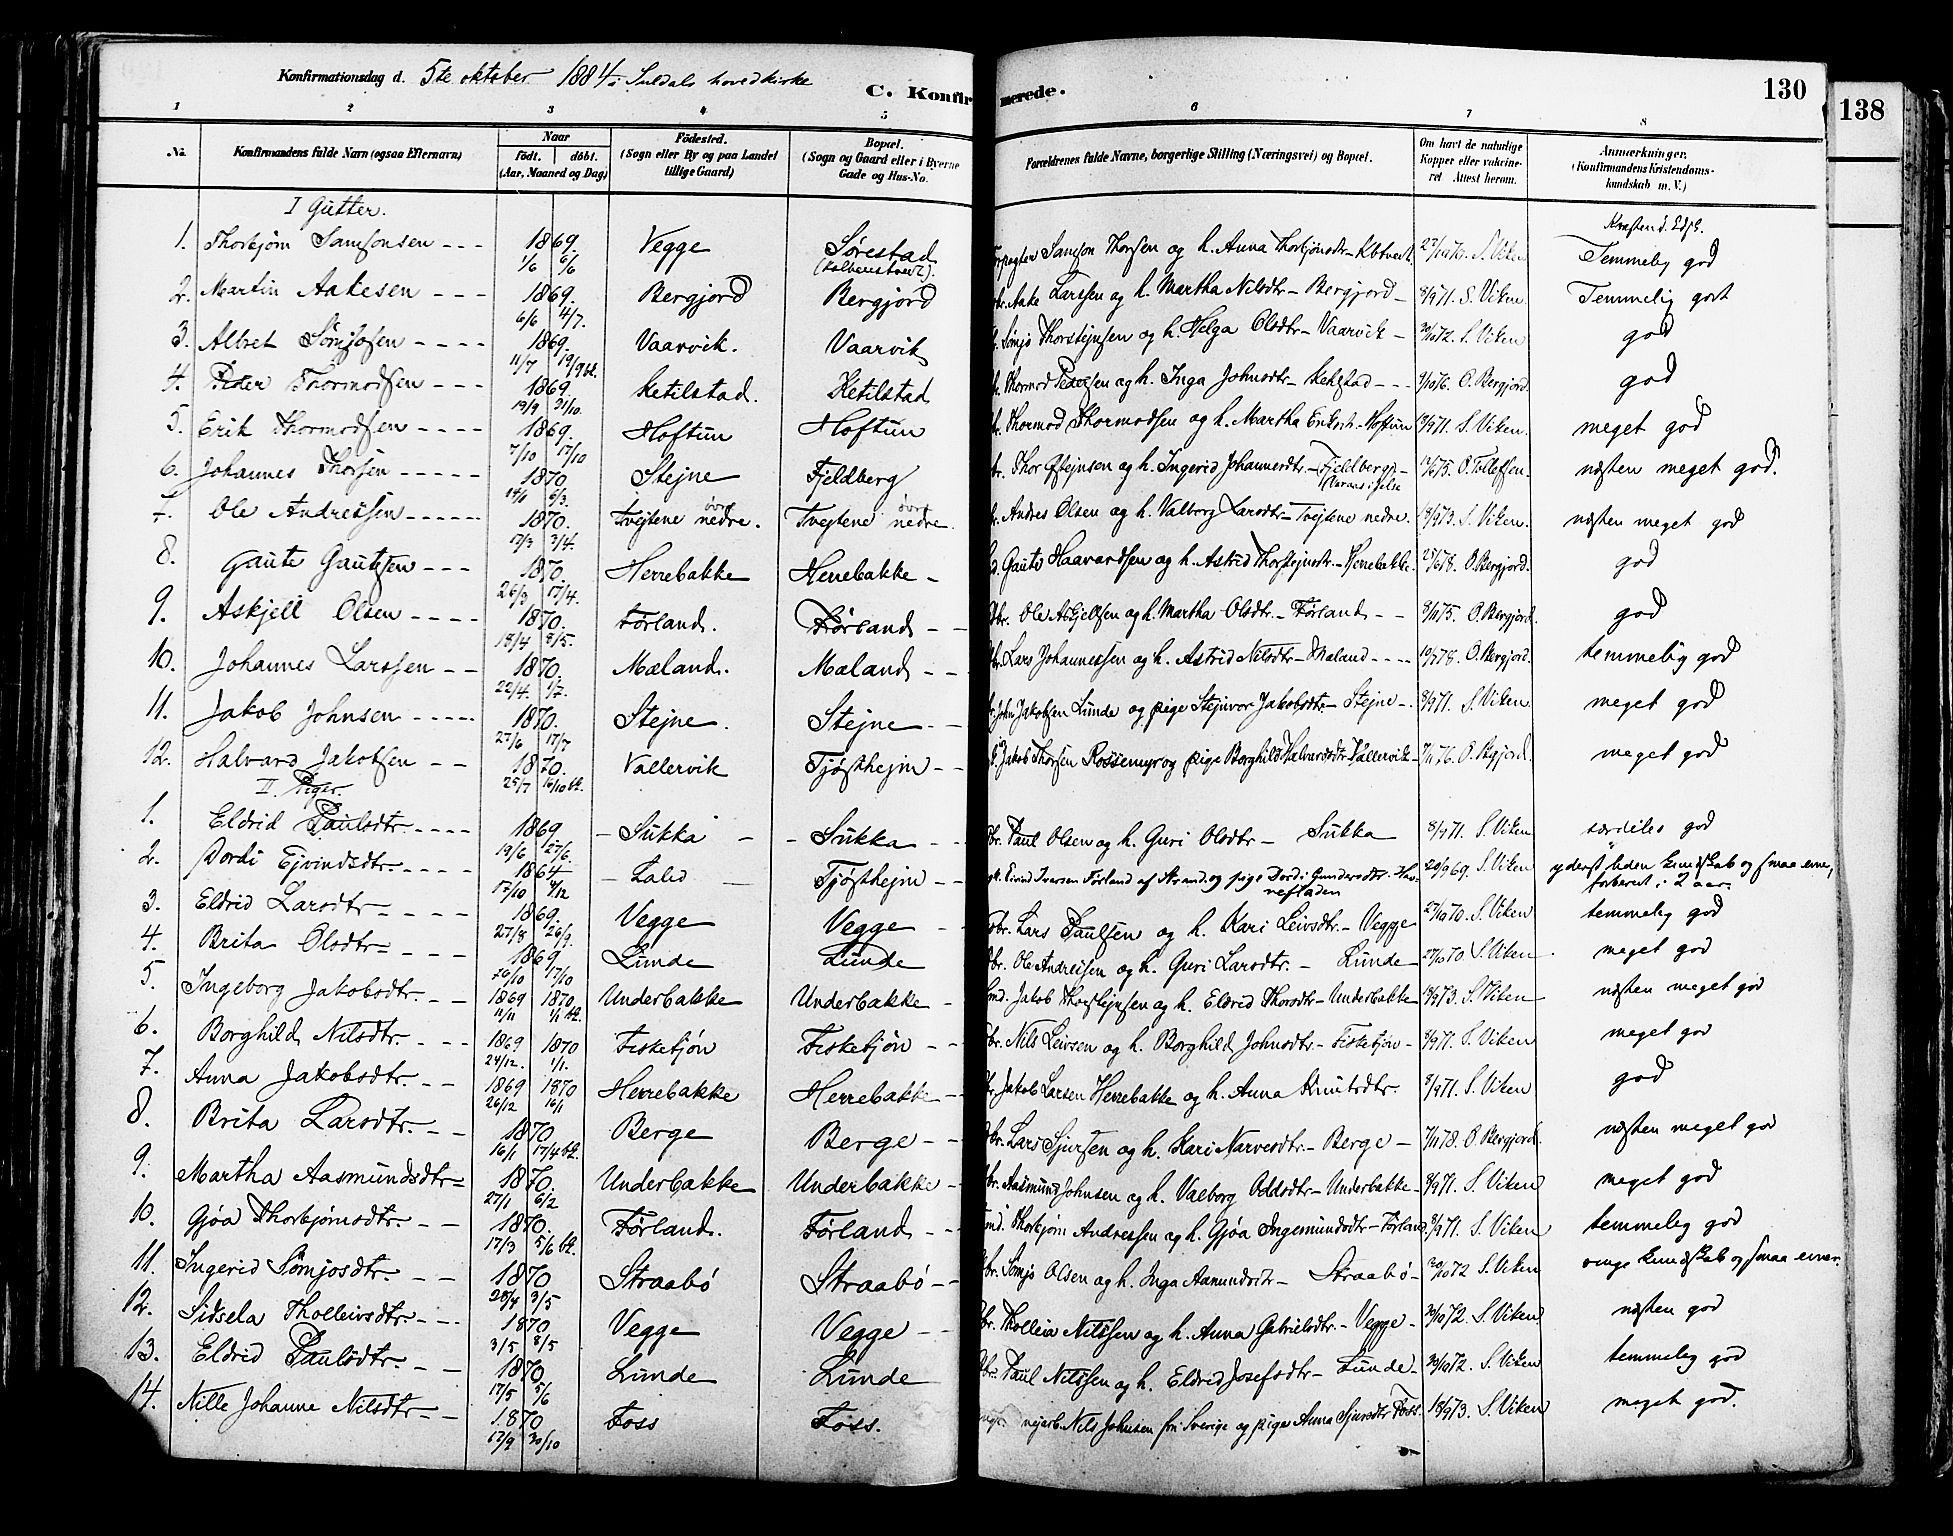 Konfirmationsdag d. 5te oktober 1884 i Suldals hovedkirke
C. Konfirmerede.
130
138
1 2 3 4 5 6 7 8
No. Konfirmandens fulde Navn (ogsaa Efternavn) Naar födt. döbt. (Aar, Maaned og Dag) Födested. (Sogn eller By og paa Landet tillige Gaard) Bopæl. (Sogn og Gaard eller i Byerne Gade og Hus-No. Forældrenes fulde Navne, borgerlige Stilling (Næringsvei) og Bopæl. Om havt de naturlige Kopper eller vakcineret Attest herom. Anmærkninger. (Konfirmandens Kristendomskundskab m. V.)
I Gutter.
1. Thorbjørn Samsonsen 1869. 1/6 6/6 Vegge Sørestad Samson Thorsen og h. Anna Thorbjørnsdtr 27/10 70. S. Viken Temmelig god
2. Martin Aakesen 1869. 6/6 4/7. Bergjord Bergjord Aake Larssen og h. Martha Nilsdtr Bergjord 8/9 71. S. Viken Temmelig godt
3. Albret Sømjosen 1869. 11/7 19/9 bl. Vaarvik. Vaarvik Sømjo Thorstejnsen og h. Helga Olsdtr Vaarvik 20/10 72. S. Viken god
4. Peder Thormodsen 1869. 19/9 21/10. Ketilstad. Ketilstad Thormod Pedersen og h. Inga Johnsdtr Ketilstad 9/10 76. O. Bergjord god
5. Erik Thormodsen 1869. 7/10 17/10 Hoftun Hoftun Thormod Thormodsen og h. Martha Eriksdtr Hoftun 8/9 71. S. Viken. meget god
6. Johannes Thorsen 1870 14/1 6/3. Stejne Fjeldberg Thor Østejnsen og h. Ingerid Johannesdtr Fjeldberg 17/6 75. O. Tollefsen. næsten meget god.
7. Ole Andreassen 1870. 17/3 3/4. Tvejtene nedre. øvre Tvejtene nedre. øvre Andres Olsen og h. Valborg Larsdtr Tvejtene nedre. 18/9 73. S. Viken. næsten meget god
8. Gaute Gautesen 1870. 26/3 17/4. Herrebakke Herrebakke Gaute Haavardsen og h. Astrid Thorstejnsdtr Herrebakke. 25/6 78. O. Bergjord. god
9. Askjell Olsen 1870. 18/4 8/5. Førland. Førland Gbr. Ole Askjelsen og h. Martha Olsdtr Førland 8/11 75. O. Bergjord. god
10. Johannes Larssen 1870. 22/4. 1/7. Mæland. Mæland Gbr. Lars Johannessen og h. Astrid Nilsdtr Mæland 19/7 78. O. Bergjord. temmelig god
11. Jakob Johnsen 1870. 27/6 17/7 Stejne. Stejne John Jakobsen Lunde og pige Stejnvor Jakobsdtr Stejne 8/9 71. S. Viken. meget god
12. Halvard Jakobsen 1870. 25/7 16/10 bl. Vallervik Tjøsthejm Jakob Thorsen Rossemyr og pige Borghild Halvardsdtr Vallervik 7/11 76. O. Bergjord. meget god
II. Piger.
1. Eldrid Paulsdtr. 1869. 19/6 27/6. Sukka Sukka Gbr. Paul Olsen og h. Guri Olsdtr Sukka 8/9 71. S. Viken særdeles god
2. Dordi Ejvindsdtr. 1864 17/10 4/12 Lalid Tjøsthejm Eivind Iversen Førland af Strand og pige Dordi Gundersdtr. 20/9 69. S. Viken yderst liden kundskab og smaa evner, forberedt i 2 aar.
3. Eldrid Larsdtr 1869. 27/8 26/9. Vegge Vegge Gbr. Lars Paulsen og h. Kari Leivsdtr. Vegge 27/10 70. S. Viken temmelig god
4. Brita Olsdtr 1869 26/10 17/10 Lunde Lunde Gbr. Ole Andreasen og h. Guri Larsdtr. Lunde 27/10 70 S. Viken meget god
5. Ingeborg Jakobsdtr. 1869 11/11 1870. 1/1 bl. Underbakke Underbakke Jakob Thorstejnsen og h. Eldrid Thorsdtr Underbakke 18/9 73. S. Viken næsten meget god
6. Borghild Nilsdtr. 1869. 24/12. 1870 1/1. Fisketjøn Fisketjøn Gbr. Nils Leivsen og h. Borghild Johnsdtr Fisketjøn 8/9 71. S. Viken meget god
7. Anna Jakobsdtr. 1869 26/12 1870 16/1 Herrebakke Herrebakke Jakob Larsen Herrebakke og h. Anna Knutsdtr. 8/9 71. S. Viken god
8. Brita Larsdtr. 1870 16/1 17/4 bl. Berge Berge Gbr. Lars Sjursen og h. Kari Narvesdtr. Berge 7/11 78. O. Bergjord. næsten meget god
9. Martha Aasmundsdtr 1870. 27/1 6/2 Underbakke Underbakke Gbr. Aasmund Johnsen og h. Valborg Oddsdtr. Underbakke 8/9 71. S. Viken meget god
10. Gjøa Thorbjørnsdtr. 1870. 17/3 5/6 bl. Førland. Førland Thorbjørn Andreasen og h. Gjøa Ingemundsdtr Førland 8/9 71. S. Viken temmelig god
11. Ingerid Sømjosdtr. 1870 28/4 3/5 Straabø Straabø Gbr. Sømjo Olsen og h. Inga Aamundsdtr Straabø 20/10 72 S. Viken ringe kundskab og smaa evner.
12. Sidsela Tholleivsdtr. 1870 3/5 8/5 Vegge Vegge Gbr. Tholleiv Nilssen og h. Anna Gabrielsdtr. Vegge 20/10 72. S. Viken næsten god
13. Eldrid Paulsdtr. 1870 17/5 5/6 Lunde Lunde Gbr. Paul Nilssen og h. Eldrid Josefsdtr Lunde 20/10 72. S. Viken temmelig god
14. Nille Johanne Nilsdtr 1870 17/9 30/10 Foss Foss. vejarb. Nils Johnsen fra Sverige og pige Anna Sjursdtr Foss. 18/9 73. S. Viken meget god.